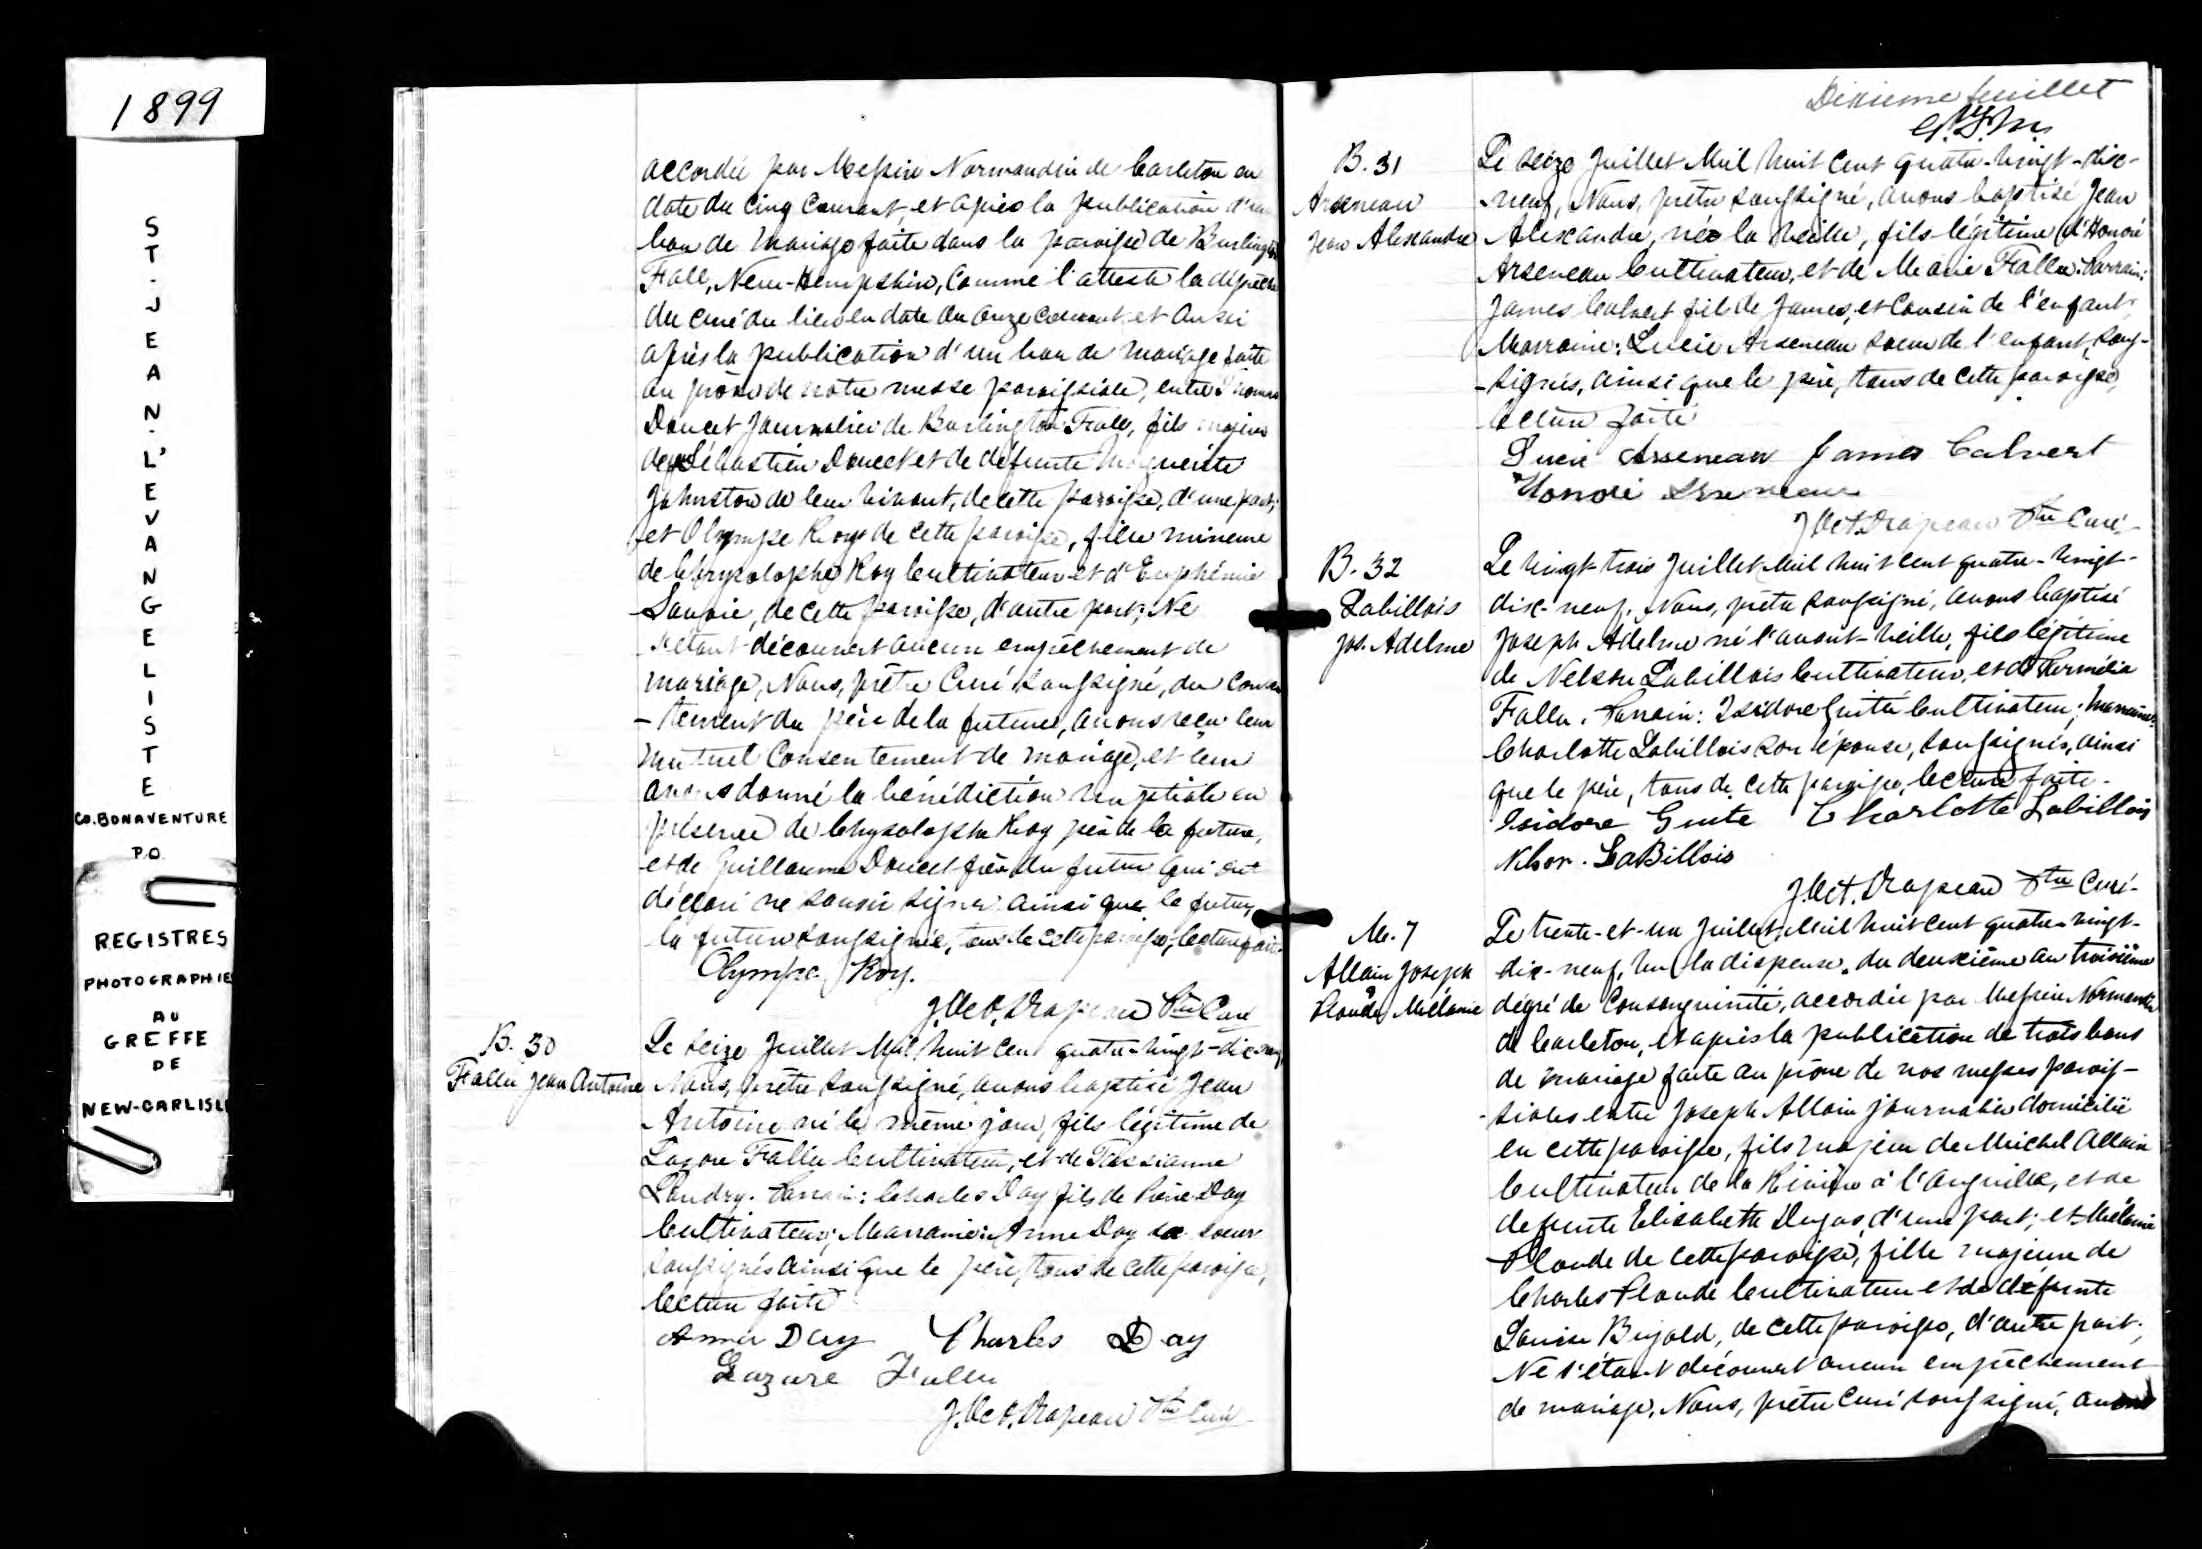 1899
ST. JEAN L'EVANGELISTE
CO. BONAVENTURE
P.Q.
REGISTRES
PHOTOGRAPHIE
AU
GREFFE
DE
NEW-CARLISLE
accordée par Messire Normandin de Carleton en
date du cinq courant, et après la publication d'un
ban de mariage faite dans la paroisse de Burlington
Fall, New-Hempshire, comme l'atteste la dépêche
du curé du lieu en date du onze courant et aussi
après la publication d'un ban de mariage faite
au prône de notre messe paroissiale, entre Thomas
Doucet journalier de Burlington Fall, fils majeur
de Sébastien Doucet et de défunte Marguerite
Johnston de leur vivant, de cette paroisse, d'une part;
et Olympe Roy de cette paroisse, fille mineure
de Chrysolophe Roy Cultivateur et d'Euphémie
Savoie, de cette paroisse, d'autre part; Ne
s'étant découvert aucun empêchement de
mariage, Nous, prêtre Curé soussigné, du consen
-tement du père de la future, avons reçu leur
mutuel consentement de mariage, et leur
avons donné la bénédiction nuptiale en
présence de Chrysolophe Roy père de la future,
et de Guillaume Doucet frère du futur qui ont
déclaré ne savoir signer ainsi que le futur,
la future soussignée, tous de cette paroisse, lecture faite.
Olympe Roy.
J. Oct. Drapeau Ptre Curé
B. 30
Fallu Jean Antoine
Le seize Juillet Mil huit cent quatre-vingt-dix-neuf
Nous, prêtre soussigné, avons baptisé Jean
Antoine né le même jour, fils légitime de
Lazare Fallu Cultivateur, et de
Landry. Parrain: Charles Day fils de Pierre Day
Cultivateur; Marraine: Anne Day sa soeur
soussignés ainsi que le père, tous de cette paroisse,
lecture faite
Anna Day Charles Day
Lazare Fallu
J. Oct. Drapeau Ptre Curé
Dixieme feuillet
B. 31
Arseneau
Jean Alexandre
Le seize Juillet Mil huit cent quatre-vingt-dix-
neuf, Nous, prêtre soussigné, avons baptisé Jean
Alexandre, né la veille, fils légitime d'Honoré
Arseneau Cultivateur, et de Marie Fallu. Parrain:
James Calvert fils de James, et cousin de l'enfant,
Marraine: Lucie Arseneau soeur de l'enfant, sous-
-signés, ainsi que le père, tous de cette paroisse,
lecture faite
Lucie Arseneau James Calvert
Honoré Arseneau
J. Oct. Drapeau Ptre Curé
B. 32
Labillois
Jos. Adelme
Le vingt-trois Juillet Mil huit cent quatre-vingt-
dix-neuf, Nous, prêtre soussigné, avons baptisé
Joseph Adelme né l'avant-veille, fils légitime
de Nelson Labillois Cultivateur, et d'Herméline
Fallu. Parrain: Isidore Guité Cultivateur; Marraine:
Charlotte Labillois son épouse, soussignés, ainsi
que le père, tous de cette paroisse, lecture faite.
Isidore Guite Charlotte Labillois
Nelson LaBillois
J. Oct. Drapeau Ptre Curé
M. 7
Allain Joseph
&
Plaude Mélanie
Le trente-et-un Juillet Mil huit cent quatre-vingt-
dix-neuf, vu la dispense du deuxième au troisième
dégré de Consanguinité, accordée par Messire Normandin
de Carleton, et après la publication de trois bans
de mariage faite au prône de nos messes parois-
siales entre Joseph Allain journalier domicilié
en cette paroisse, fils majeur de Michel Allain
Cultivateur de la Rivière à l'anguille, et de
defunte Elisabeth Dugas, d'une part; et Mélanie
Plaude de cette paroisse, fille majeure de
Charles Plaude Cultivateur et de défunte
Louise Bujold, de cette paroisse, d'autre part;
Ne s'étant découvert aucun empêchement
de mariage, Nous, prêtre curé soussigné, avons